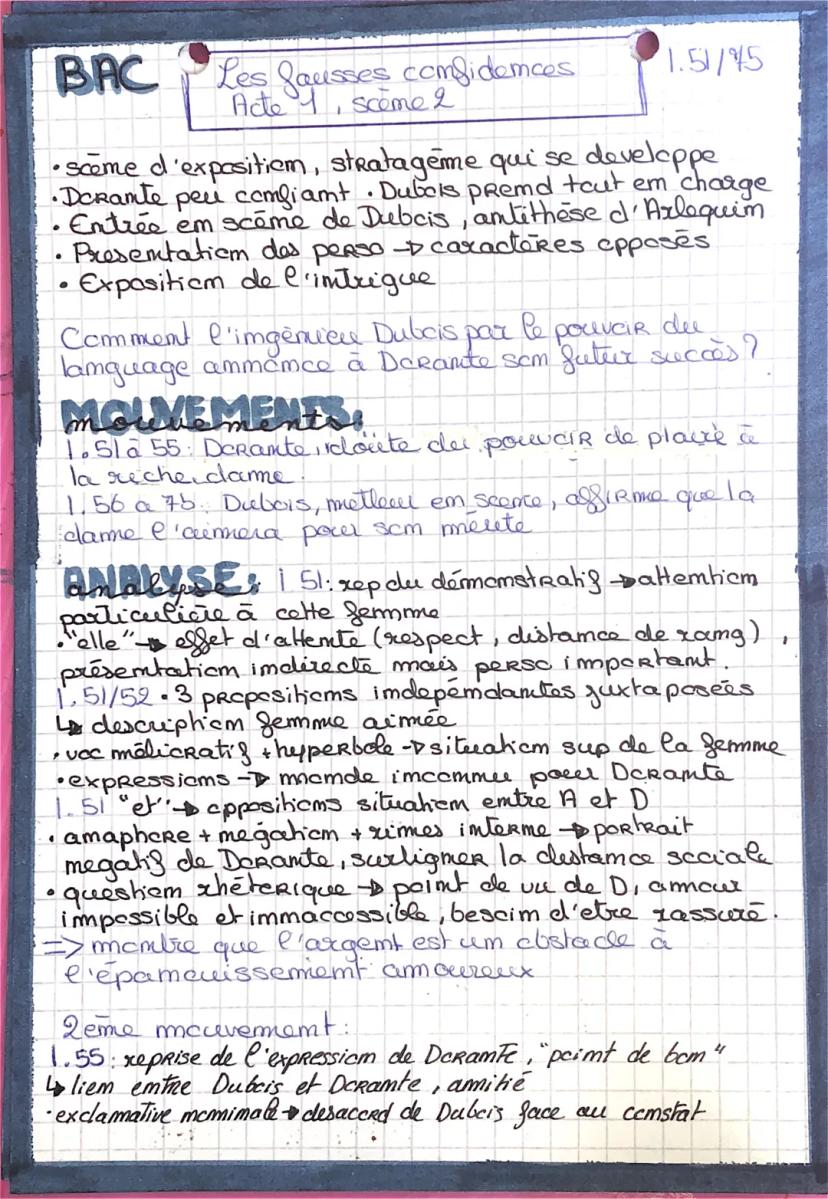 BAC
Les fausses confidences
Acte 1, scène 2
l.51/75
• scène d'exposition, stratagème qui se developpe
• Dorante peu confiant . Dubois prend tout en charge
• Entrée en scène de Dubois, antithèse d'Arlequin
• Presentation des perso → caractères opposés
• Exposition de l'intrigue
Comment l'ingénieu Dubois par le pouvoir du
language annonce à Dorante son futur succès ?
MOUVEMENTS:
mouvements:
l.51 à 55: Dorante, doute du pouvoir de plaire à
la riche dame.
l.56 à 75: Dubois, metteur en scene, affirme que la
dame l'aimera pour son mérite
ANALYSE:
analyse: l 51: rep du démonstratif → attention
particulière à cette femme
• "elle" → effet d'attente (respect, distance de rang),
présentation indirecte mais perso important.
l.51/52 • 3 propositions indépendantes juxtaposées
↳ description femme aimée
• voc mélioratif + hyperbole → situation sup de la femme
• expressions → monde inconnu pour Dorante
l.51 "et" → oppositions situation entre A et D
• anaphore + négation + rimes interne → portrait
negatif de Dorante, surligner la distance sociale
• question rhéterique → point de vu de D, amour
impossible et innaccessible, besoin d'etre rassuré.
=> montre que l'argent est un obstacle à
l'épanouissement amoureux
2eme mouvement:
l.55: reprise de l'expression de Dorante, "point de bon"
↳ lien entre Dubois et Dorante, amitié
• exclamative nominale → desaccord de Dubois face au constat